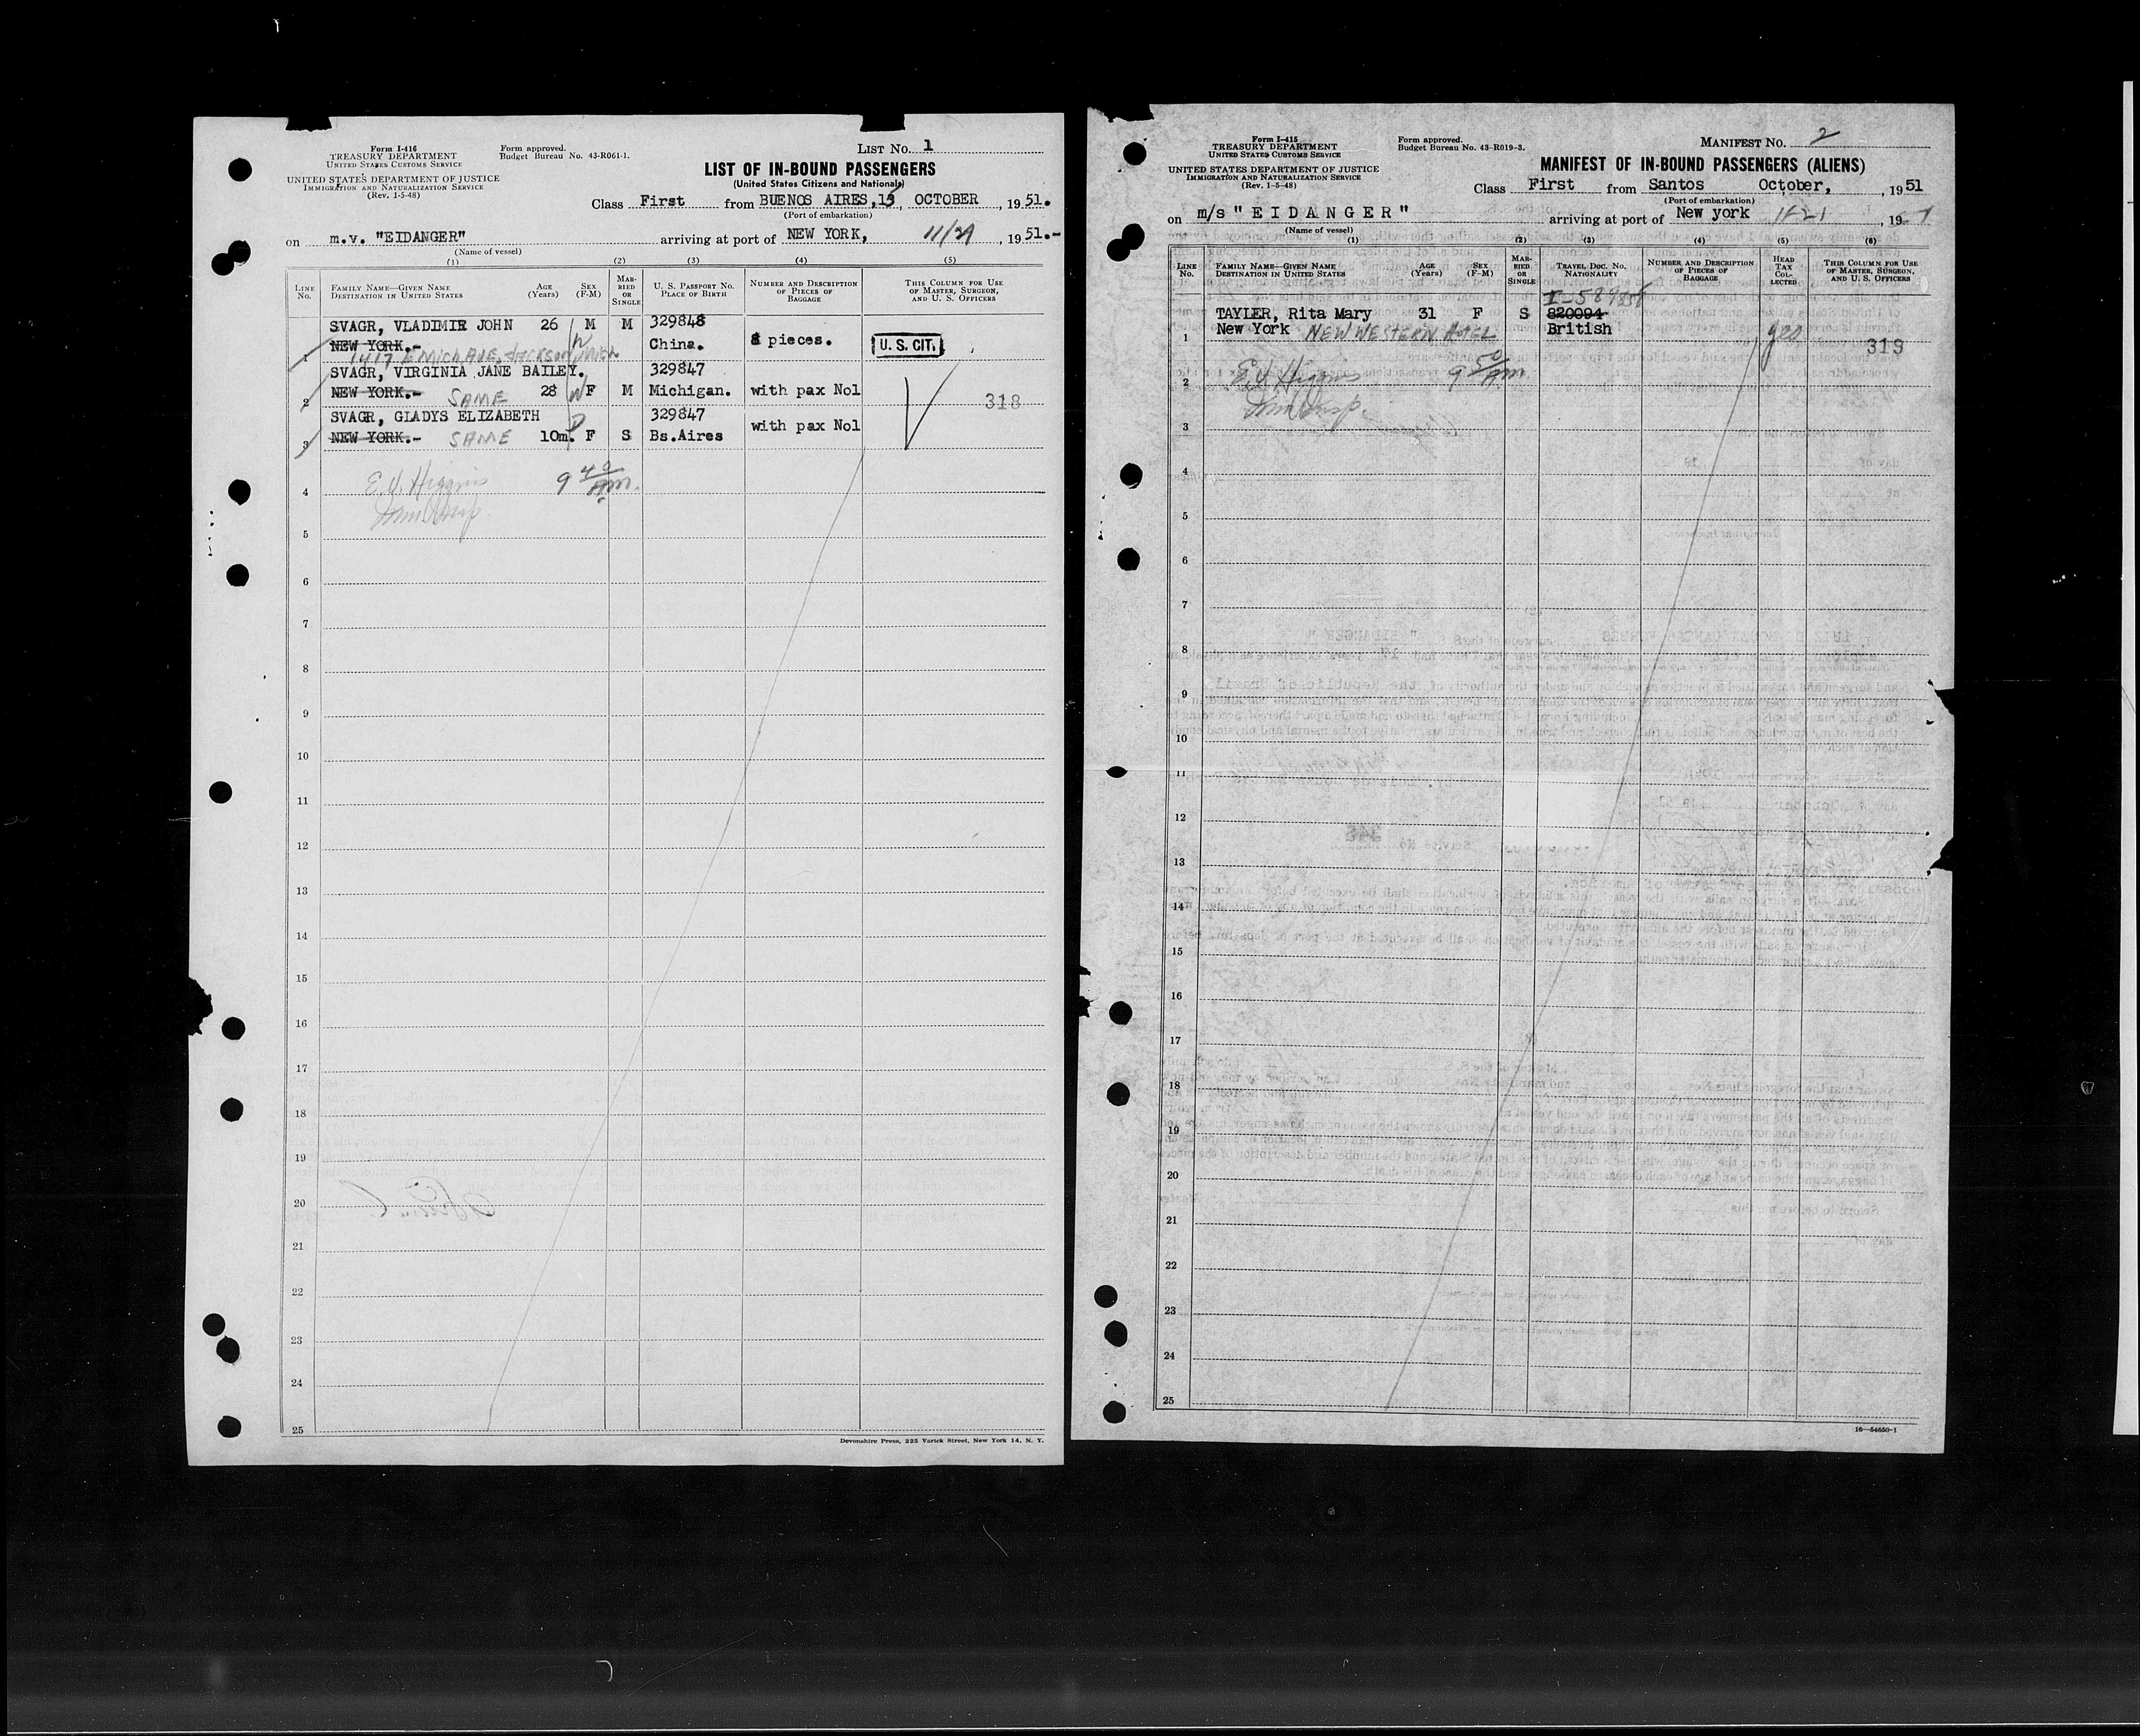 Form I-416
TREASURY DEPARTMENT
UNITED STATES CUSTOMS SERVICE
UNITED STATES DEPARTMENT OF JUSTICE
IMMIGRATION AND NATURALIZATION SERVICE
(Rev. 1-5-48)
Form approved.
Budget Bureau No. 43-R061-1.
LIST NO. 1
LIST OF IN-BOUND PASSENGERS
(United States Citizens and Nationals)
Class First from BUENOS AIRES, 15, OCTOBER, 1951.
(Port of embarkation)
on m.v. "EIDANGER" arriving at port of NEW YORK, 11/21, 1951.-
(Name of vessel)
(1) (2) (3) (4) (5)
LINE NO. FAMILY NAME—GIVEN NAME DESTINATION IN UNITED STATES AGE (Years) SEX (F-M) MARRIED OR SINGLE U. S. PASSPORT NO. PLACE OF BIRTH NUMBER AND DESCRIPTION OF PIECES OF BAGGAGE THIS COLUMN FOR USE OF MASTER, SURGEON, AND U. S. OFFICERS
SVAGR, VLADIMIR JOHN 26 M M 329848
1 NEW YORK.- China. pieces. U. S. CIT.
1417 E MICH AVE, JACKSON, MICH
SVAGR, VIRGINIA JANE BAILEY. 329847
2 NEW YORK.- SAME 28 W F M Michigan. with pax No1 318
SVAGR, GLADYS ELIZABETH 329847
3 NEW YORK.- SAME 10m. F S Bs.Aires with pax No1
4 E. J. Higgins 9 40 AM.
Imm. Insp.
5
6
7
8
9
10
11
12
13
14
15
16
17
18
19
20
21
22
23
24
25
Devonshire Press, 225 Varick Street, New York 14, N. Y.
Form I-415
TREASURY DEPARTMENT
UNITED STATES CUSTOMS SERVICE
UNITED STATES DEPARTMENT OF JUSTICE
IMMIGRATION AND NATURALIZATION SERVICE
(Rev. 1-5-48)
Form approved.
Budget Bureau No. 43-R019-3.
MANIFEST NO. 2
MANIFEST OF IN-BOUND PASSENGERS (ALIENS)
Class First from Santos October, 1951
(Port of embarkation)
on m/s "EIDANGER" arriving at port of New york 11-21, 19
(Name of vessel)
(1) (2) (3) (4) (5) (6)
LINE NO. FAMILY NAME—GIVEN NAME DESTINATION IN UNITED STATES AGE (Years) SEX (F-M) MARRIED OR SINGLE TRAVEL DOC. NO. NATIONALITY NUMBER AND DESCRIPTION OF PIECES OF BAGGAGE HEAD TAX COLLECTED THIS COLUMN FOR USE OF MASTER, SURGEON, AND U. S. OFFICERS
TAYLER, Rita Mary 31 F S 820094
1 New York NEW WESTERN HOTEL British 319
2 E. J. Higgins 9 50 AM
Imm. Insp.
3
4
5
6
7
8
9
10
11
12
13
14
15
16
17
18
19
20
21
22
23
24
25
16—54650-1